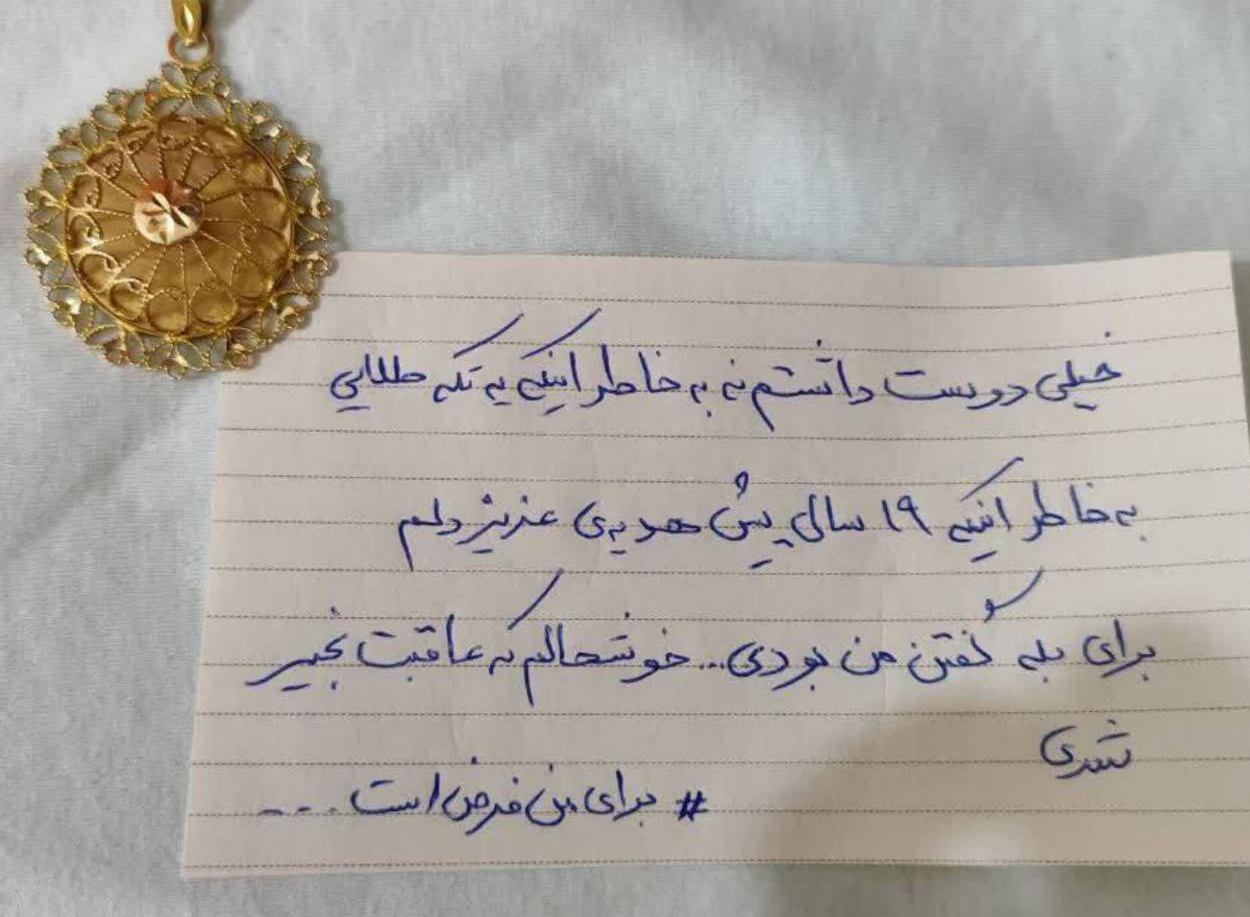 خیلی دوست داشتم نه به خاطر اینکه یه تکه طلایی
به خاطر اینکه ۱۹ سال پیش هدیه‌ی عزیز دلم
برای بله گفتن من بودی... خوشحالم که عاقبت بخیر
شدی
# برای من فرض است ....